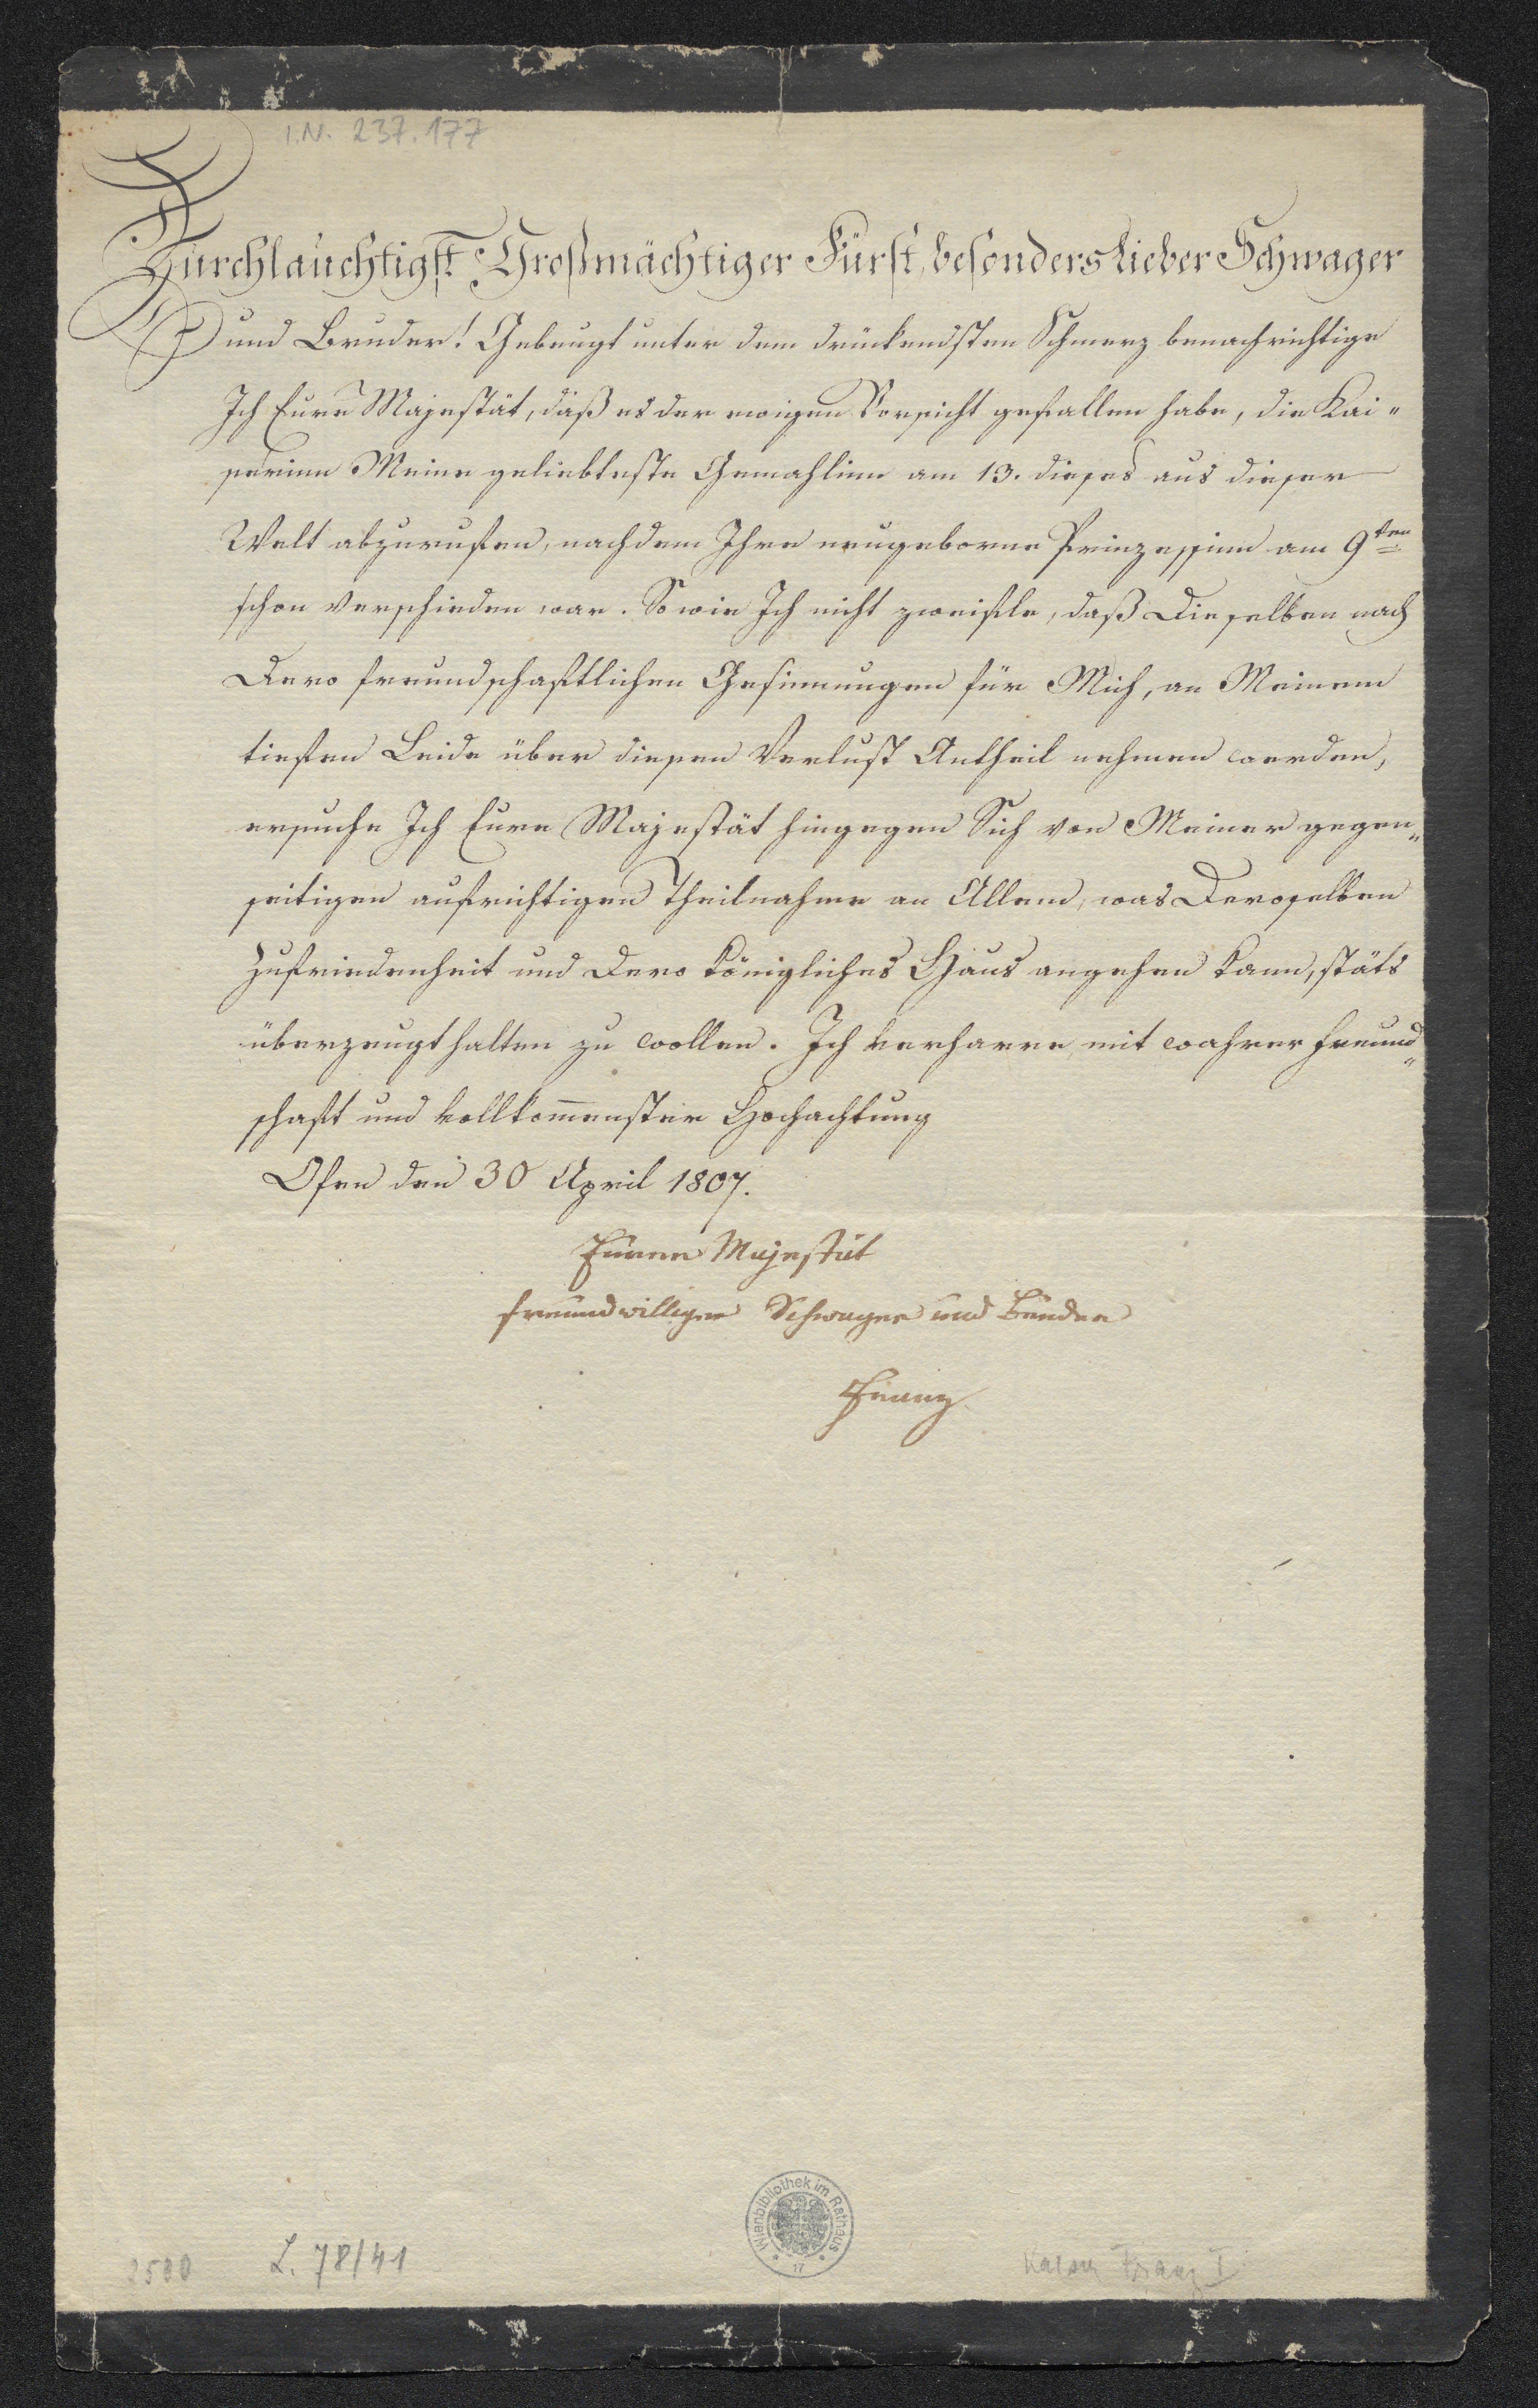 I.N. 237.177
Durchlauchtigst Großmächtiger Fürst, besonders lieber Schwager
und Bruder! Gebeugt unter dem drückendsten Schmerz benachrichtige
Ich Eure Majestät, daß es der ewigen Vorsicht gefallen habe, die Kai„
serinn Meine geliebteste Gemahlinn am 13. dieses aus dieser
Welt abzurufen, nachdem Ihre neugeborne Prinzessinn am 9ten
schon verschieden war. So wie Ich nicht zweifle, daß Dieselben nach
Dero freundschaftlichen Gesinnungen für Mich, an Meinem
tiefen Leide über diesen Verlust Antheil nehmen werden,
ersuche Ich Eure Majestät hingegen Sich von Meiner gegen„
seitigen aufrichtigen Theilnahme an Allem, was Deroselben
Zufriedenheit und Dero Königliches Haus angehen kann, stäts
überzeugt halten zu wollen. Ich verharre mit wahrer Freund„
schaft und vollkom̅enster Hochachtung
Ofen den 30 April 1807.
Eurer Majestät
freundwilliger Schwager und Bruder
Franz
Wienbibliothek im Rathaus
17
2500
L. 78/41
Kaiser Franz I